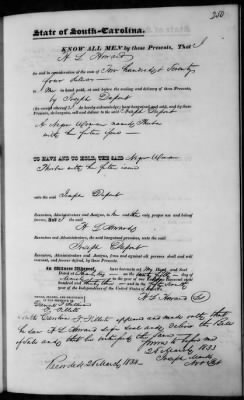 250
State of South-Carolina.
KNOW ALL MEN by these Presents, That I
H L Howard
for and in consideration of the sum of Two hundred & Seventy
four dollars
to Me in hand paid, at and before the sealing and delivery of these Presents,
by Joseph Dupont
(the receipt whereof I do hereby acknowledge) have bargained and sold, and by these
Presents, do bargain, sell and deliver to the said Joseph Dupont
A Negro Woman named
with her future issue
TO HAVE AND TO HOLD, THE SAID Negro Woman
with her future issue
unto the said Joseph Dupont
Executors, Administrators and Assigns, to
and behoof, forever. And I the said
H L Howard
Executors and Administrators, the said bargained premises, unto the said
Joseph Dupont
Executors, Administrators and Assigns, from and against all persons shall and will
warrant, and forever defend, by these Presents.
In Witness Whereof, I have hereunto set My Hand and Seal
Dated at Charleston on the twenty fifth day of
March in the year of our Lord one thousand eight
hundred and thirty three and in the fifty seventh
year of the Independence of the United States of America
SIGNED, SEALED, AND DELIVERED
IN THE PRESENCE OF
H L Howard
South Carolina
appeared and made oath that
he saw H L Howard sign seal and deliver the Bill
of Sale and that he witnessed the same
Sworn to before me
26 March 1833
Recorded 26 March 1833